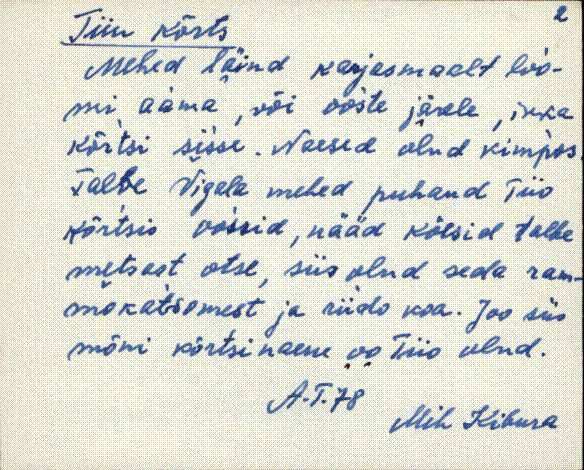 2
Tiiu kõrts
Mehed läind karjasmaalt loo-
mi aama, või ooste järele, ikka
kõrtsi sisse. Naesed olnd kimpos.
Talbe Vigala mehed puhand Tiio
kõrtsis oossid, nääd kõesid talbe
metsast otse, siis olnd seda ram-
mokatsomest ja riido koa. Joo siis
mõni kõrtsinaene oo Tiio olnd.
A.T. 78
Mih Kibura